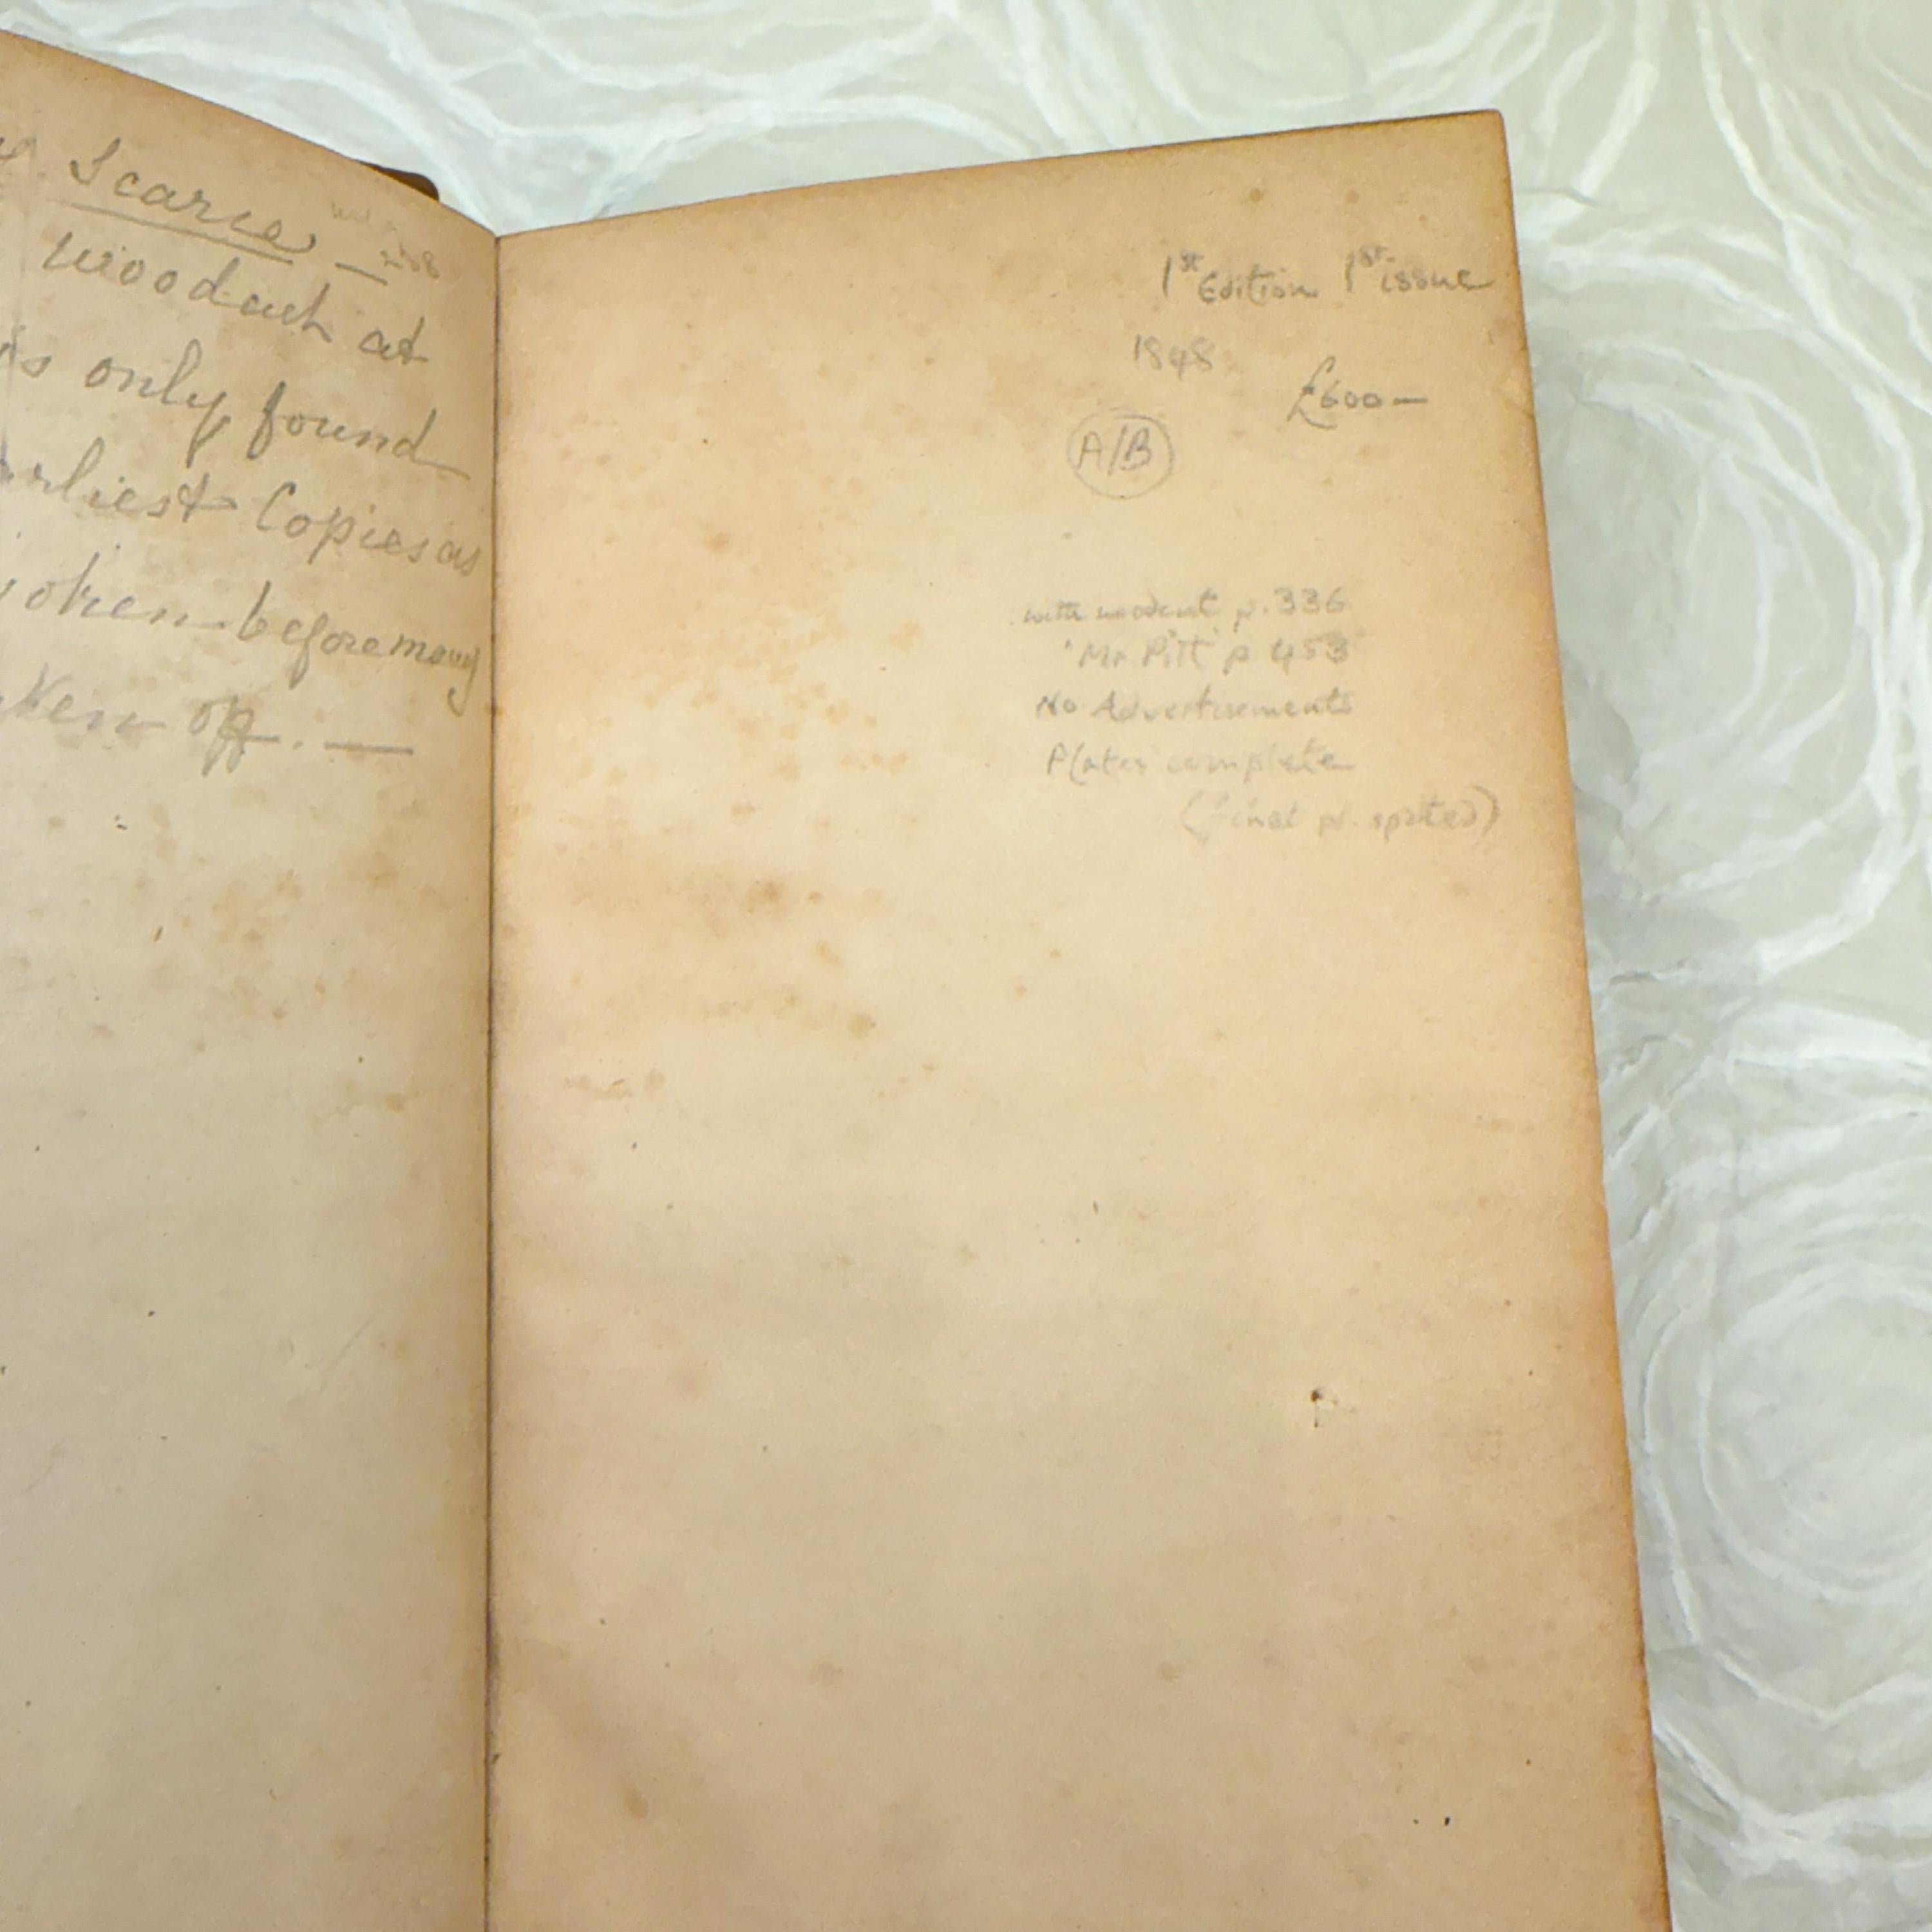 Scarce —
woodcut at
is only found
rliest Copies as
oken before many
ken off. —
1st Edition 1st issue
1848
£600—
A/B
with woodcut p. 336
'Mr Pitt' p 453
No Advertisements
Plates complete
(final pl. spotted)